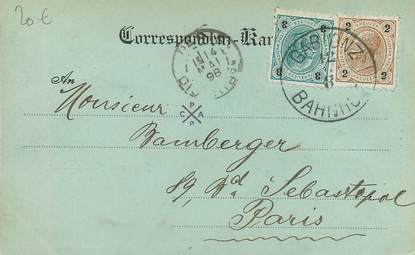 20 €
Correspondenz-Kar
8 8
2 2
GABLONZ
12
8
BAHNHO
14
MAI
98
An
C P A P
Monsieur
Bamberger
89, Bd Sebastopol
Paris